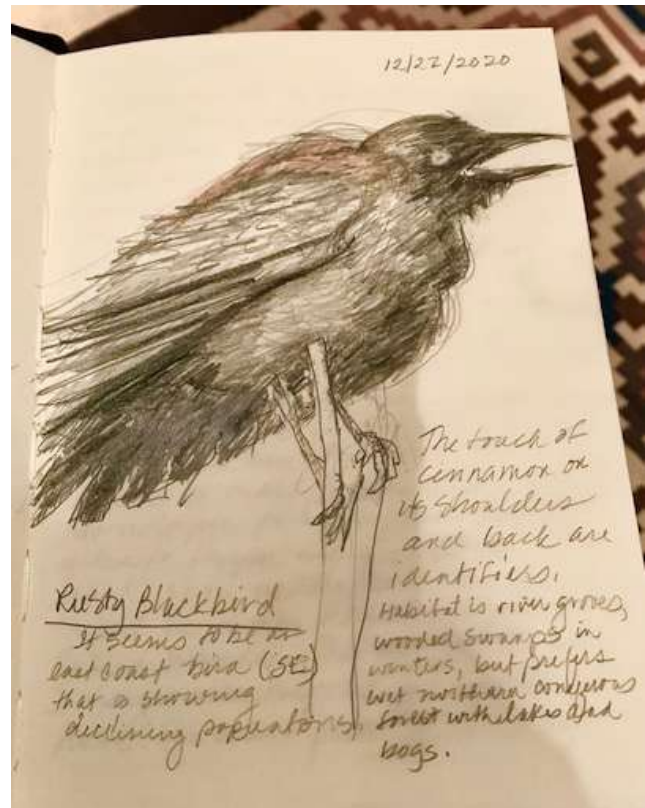 12/27/2020
Rusty Blackbird
It seems to be an
east coast bird (SE)
that is showing
declining populations.
The touch of
cinnamon on
its shoulders
and back are
identifiers.
Habitat is river groves,
wooded swamps in
winters, but prefers
wet northern coniferous
forest with lakes and
bogs.